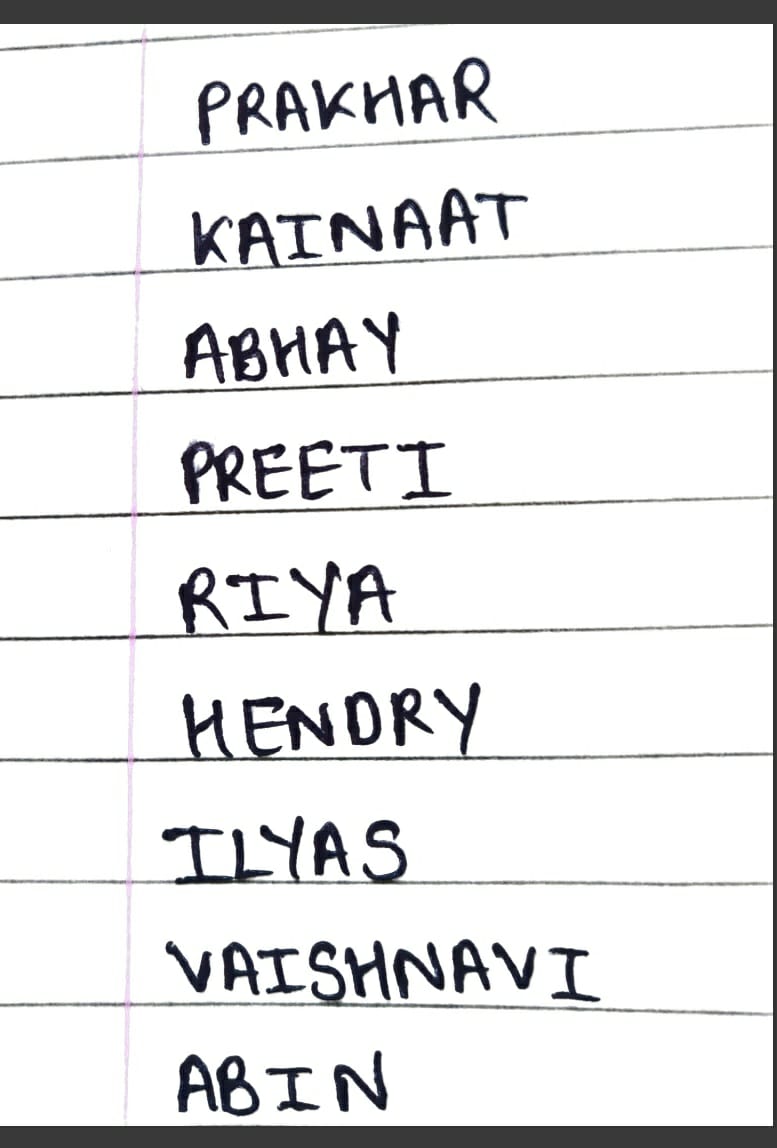 PRAKHAR
KAINAAT
ABHAY
PREETI
RIYA
HENDRY
ILYAS
VAISHNAVI
ABIN